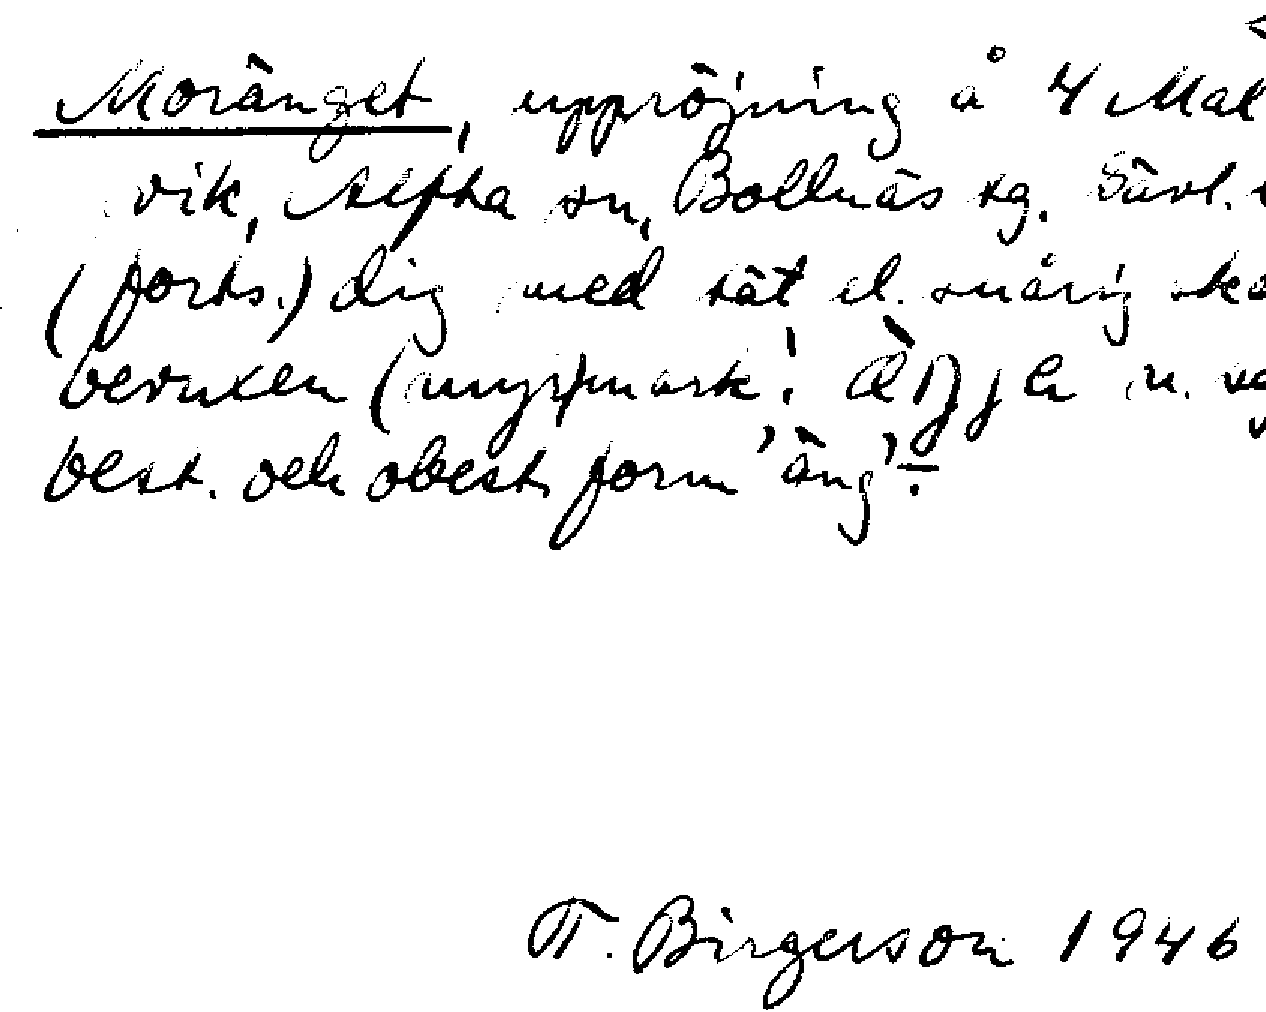 Moränget, uppröjning å 4 Mal
vik, Alfta sn, Bollnäs tg. Gävl.
(forts.) dig med tät el. snårig
bevuxen (myr)mark'. n.
best. och obest. form 'äng'÷
T. Birgerson 1946